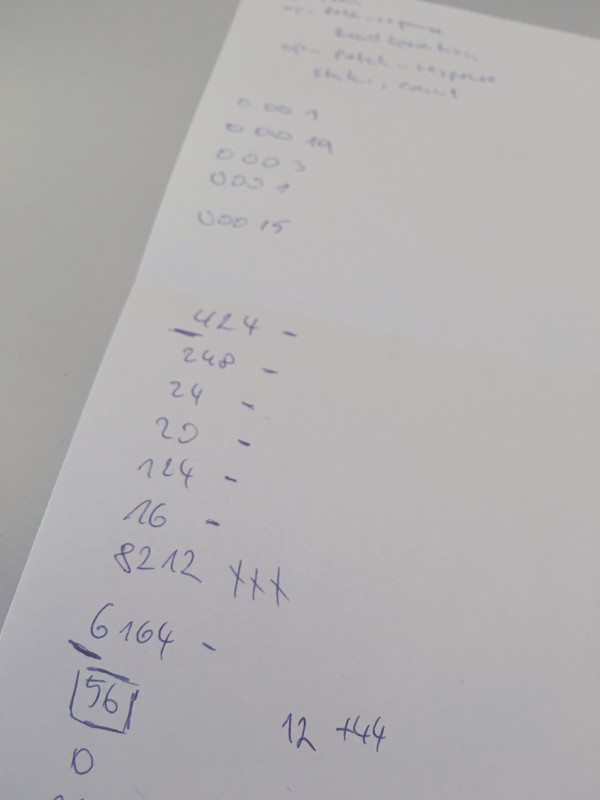 op- data - response
op- fetch - response
0 00 1
0 00 19
0 00 3
000 1
000 15
424 -
248 -
24 -
20 -
124 -
16 -
8212 XXX
6164 -
56
12 +44
0